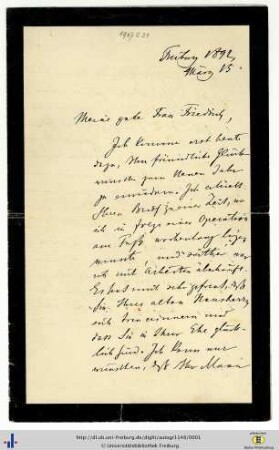 Freiburg 1892,
März 15.
Meine gute Frau Friedrich,
Ich komme erst heute
dazu, Ihre freundliche Glück-
wünsche zum Neuen Jahr
zu erwiedern. Ich erhielt
Ihren Brief zu einer Zeit, wo
ich in Folge einer Operation
am Fuß wochenlang liegen
musste, und seither war
ich mit Arbeiten überhäuft.
Es hat mich sehr gefreut, daß
Sie Ihres alten Hausherrn
sich erinnern und
daß Sie in Ihrer Ehe glück-
lich sind. Ich kann nur
wünschen, daß Ihr Mann
http://dl.ub.uni-freiburg.de/diglit/autogr1149/0001
© Universitätsbibliothek Freiburg